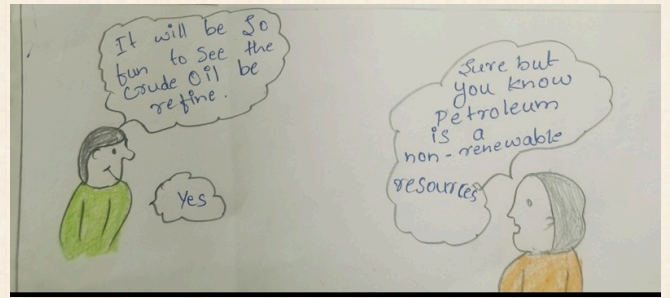 It will be so
fun to see the
crude oil be
refine.
Yes
Sure but
you know
Petroleum
is a
non-renewable
resources